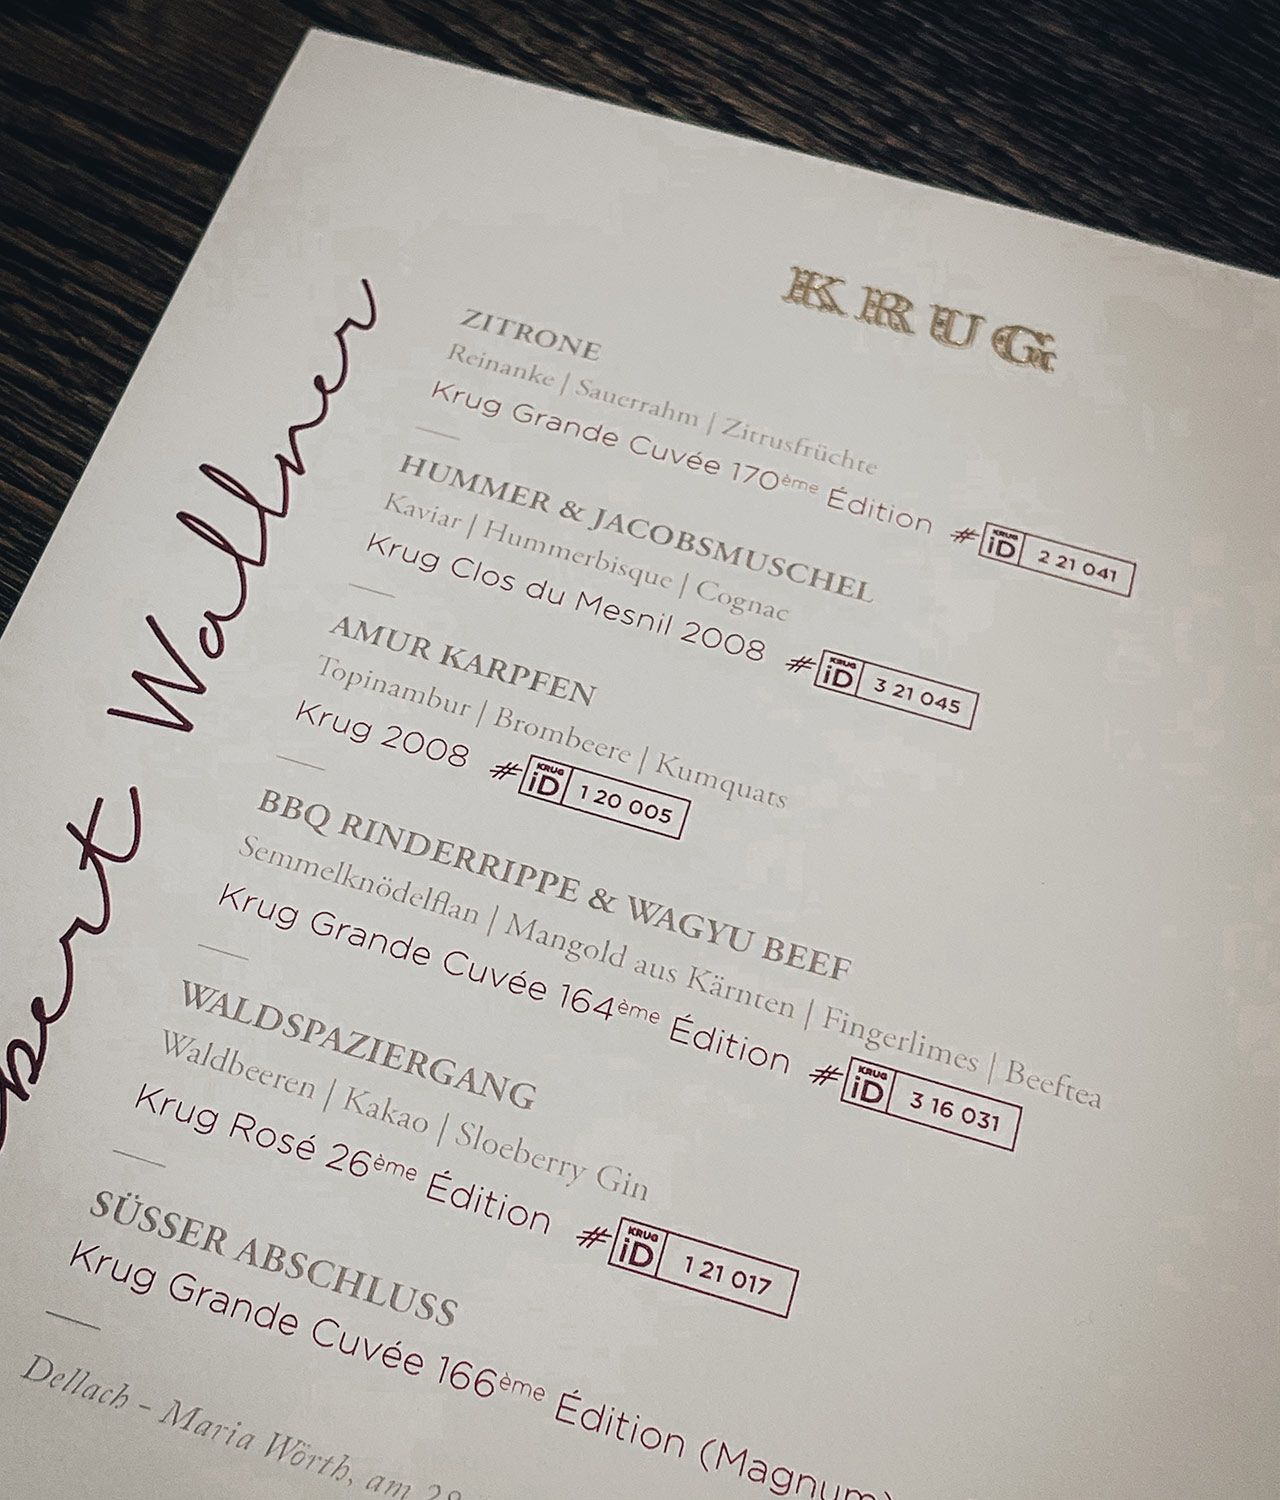 KRUG
ZITRONE
Reinanke | Sauerrahm | Zitrusfrüchte
Krug Grande Cuvée 170ème Édition # KRUG iD 2 21 041
HUMMER & JACOBSMUSCHEL
Kaviar | Hummerbisque | Cognac
Krug Clos du Mesnil 2008 # KRUG iD 3 21 045
AMUR KARPFEN
Topinambur | Brombeere | Kumquats
Krug 2008 # KRUG iD 1 20 005
BBQ RINDERRIPPE & WAGYU BEEF
Semmelknödelflan | Mangold aus Kärnten | Fingerlimes | Beeftea
Krug Grande Cuvée 164ème Édition # KRUG iD 3 16 031
WALDSPAZIERGANG
Waldbeeren | Kakao | Sloeberry Gin
Krug Rosé 26ème Édition # KRUG iD 1 21 017
SÜSSER ABSCHLUSS
Krug Grande Cuvée 166ème Édition (Magnum)
Dellach - Maria Wörth, am
Wallner